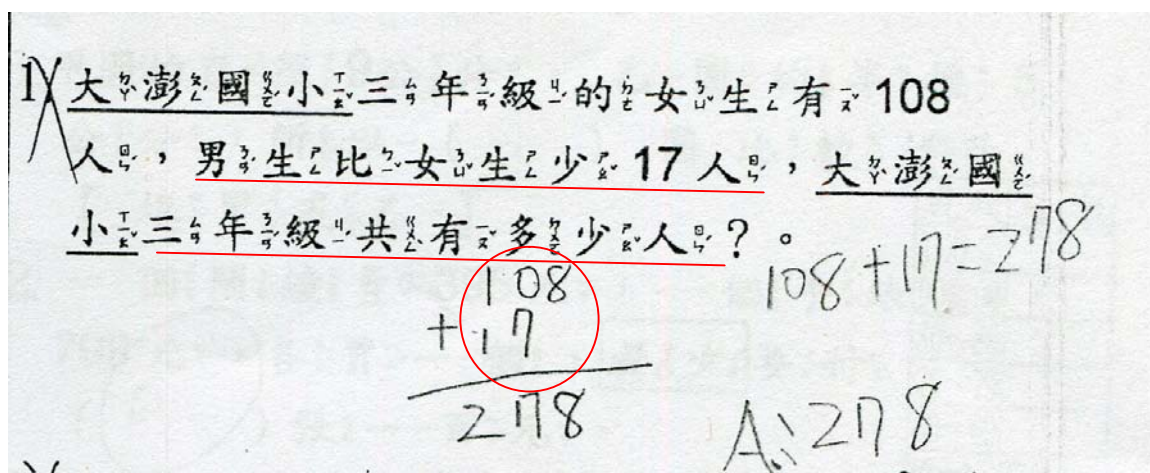 1 大澎國小三年級的女生有 108
人,男生比女生少 17 人,大澎國
小三年級共有多少人?。
108+17=278
108
+17
278
A:278